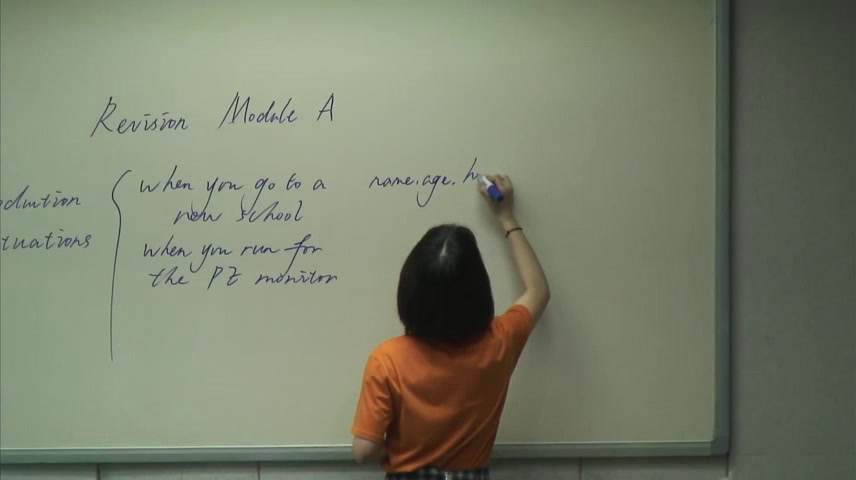 Revision Module A
when you go to a name.age.h
new school
tuations
when you run for
the PE monitor